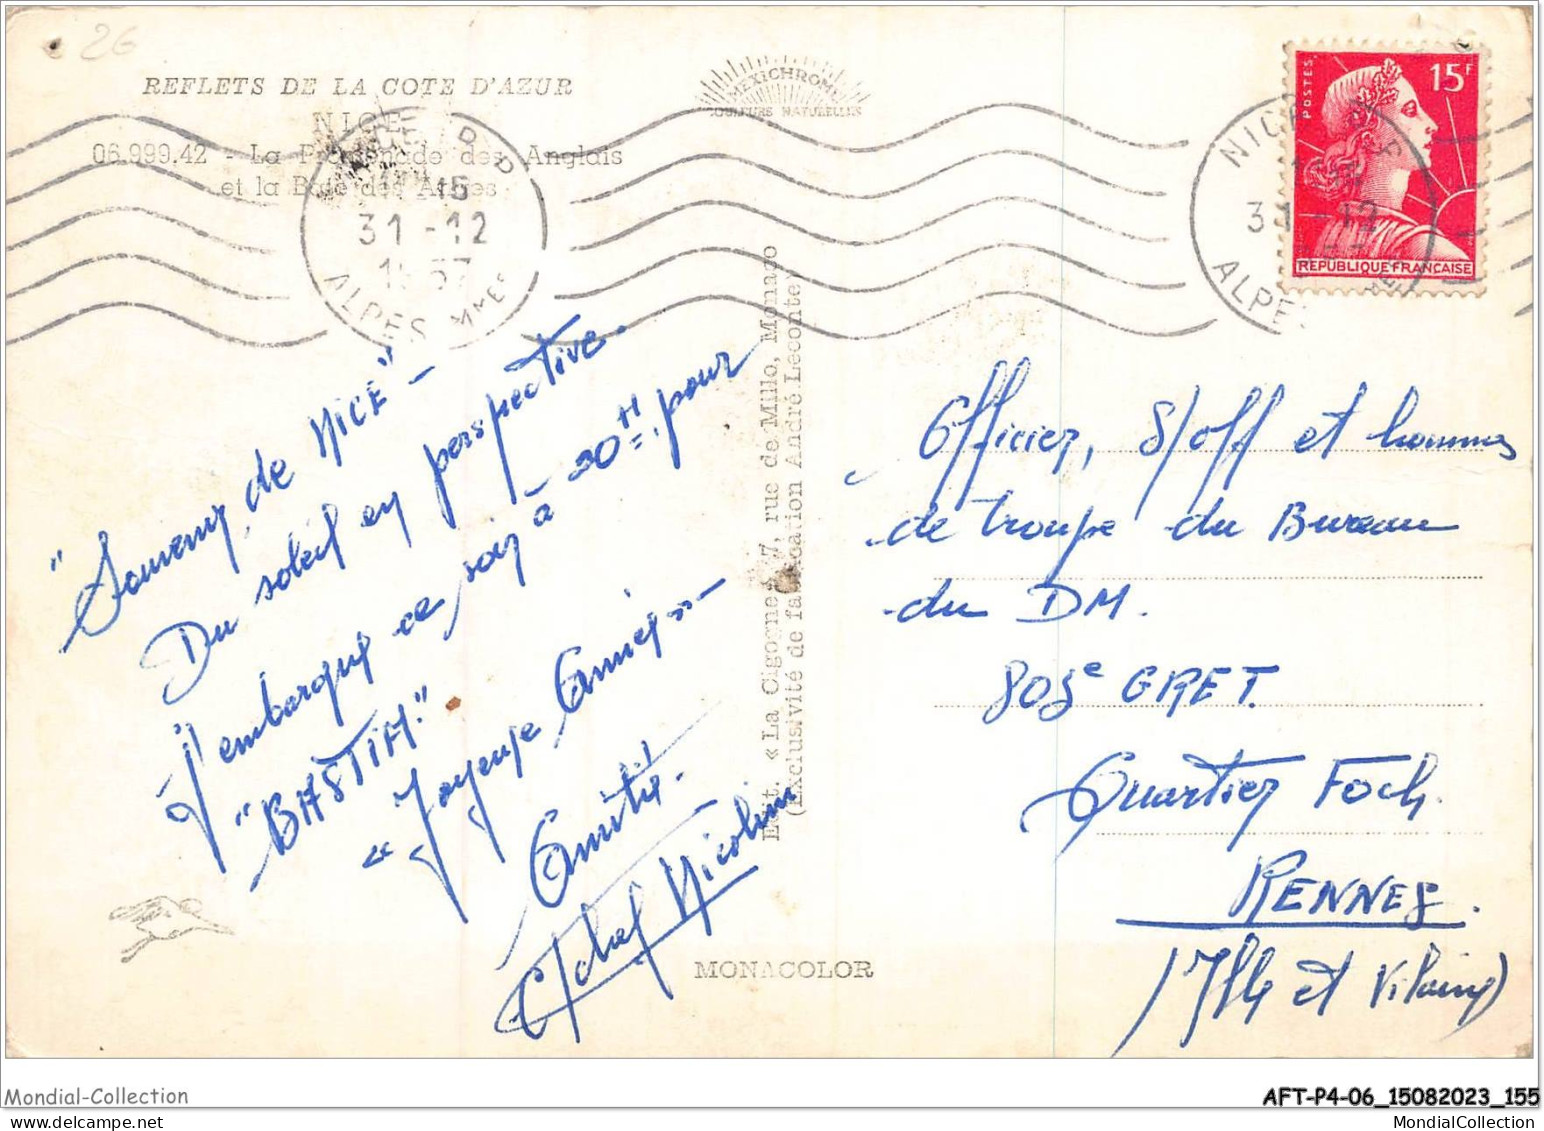 26
REFLETS DE LA COTE D'AZUR
NICE
06.999.42 - La Promenade des Anglais
et la Baie des Anges
MEXICHROME
COULEURS NATURELLES
NICE R.P.
31-12
1957
ALPES MMES
NICE
31-12
ALPES
POSTES
15F
REPUBLIQUE FRANÇAISE
"Souvenir de NICE" -
Du soleil en perspective.
J'embarque ce soir à 20H pour
"BASTIA".
« Joyeuse Année » -
Amitié.
C/chef Nicolini
Edit. « La Cigogne », 7, rue de Millo, Monaco
(Exclusivité de fabrication André Leconte)
MONACOLOR
Officier, S/off et hommes
de troupe du Bureau
du DM.
805e GRET.
Quartier Foch.
RENNES.
(Ille et Vilaine)
Mondial-Collection
AFT-P4-06_15082023_155
MondialCollection